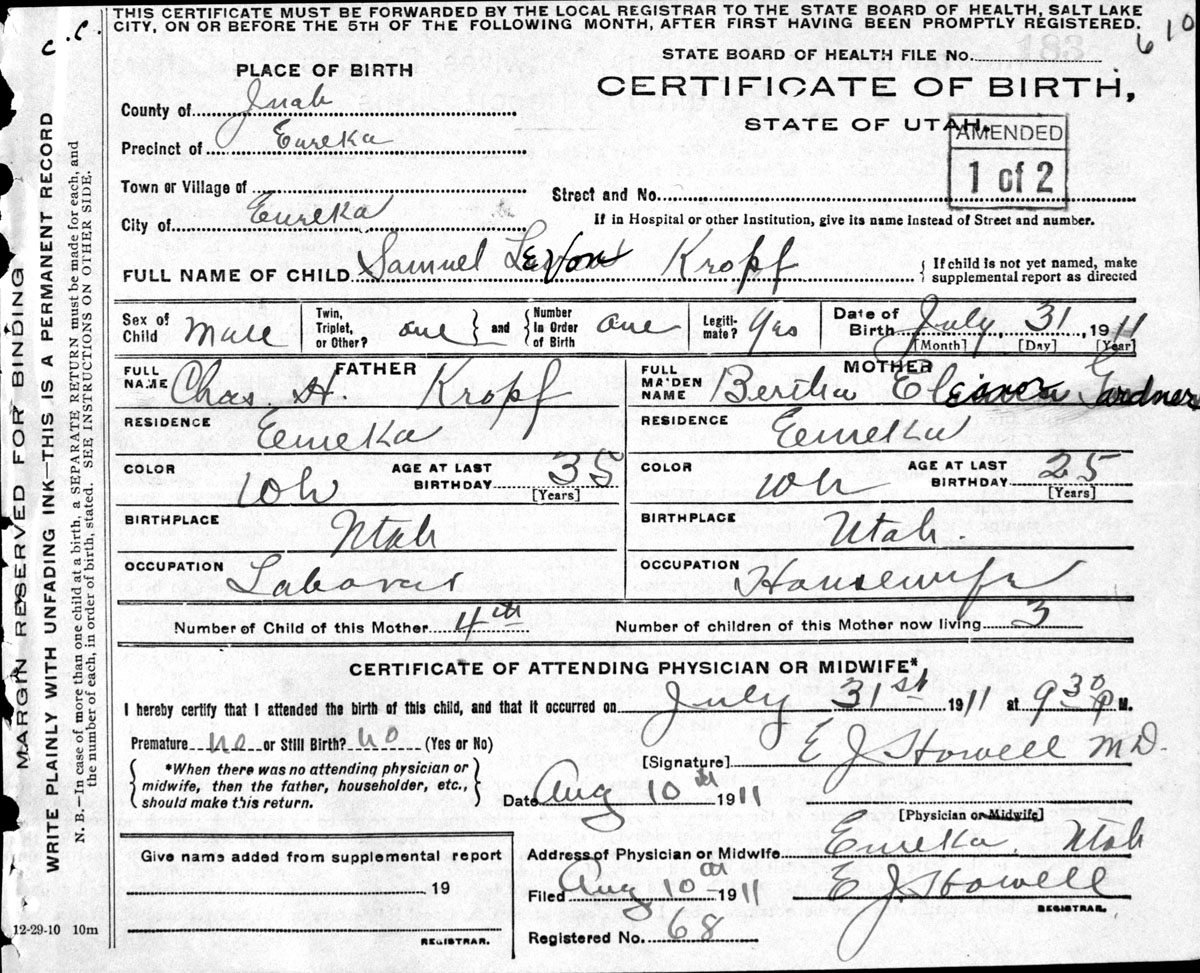 THIS CERTIFICATE MUST BE FORWARDED BY THE LOCAL REGISTRAR TO THE STATE BOARD OF HEALTH, SALT LAKE
CITY, ON OR BEFORE THE 5TH OF THE FOLLOWING MONTH, AFTER FIRST HAVING BEEN PROMPTLY REGISTERED.
C.C.
610
STATE BOARD OF HEALTH FILE No.
PLACE OF BIRTH
CERTIFICATE OF BIRTH,
STATE OF UTAH.
AMENDED
1 of 2
County of Juab
Precinct of Eureka
Town or Village of
Street and No.
City of Eureka
If in Hospital or other Institution, give its name instead of Street and number.
FULL NAME OF CHILD Samuel LeVon Kropf
{ If child is not yet named, make
supplemental report as directed
Sex of Child Male
Twin, Triplet, or Other? one } and { Number In Order of Birth one
Legiti-mate? Yes
Date of Birth July 31, 1911
[Month] [Day] [Year]
FATHER
FULL NAME Chas. H. Kropf
RESIDENCE Eureka
COLOR Wh
AGE AT LAST BIRTHDAY 35
[Years]
BIRTHPLACE Utah
OCCUPATION Laborer
MOTHER
FULL MAIDEN NAME Bertha Eleanor Gardner
RESIDENCE Eureka
COLOR Wh
AGE AT LAST BIRTHDAY 25
[Years]
BIRTHPLACE Utah.
OCCUPATION Housewife
Number of Child of this Mother 4th
Number of children of this Mother now living 3
CERTIFICATE OF ATTENDING PHYSICIAN OR MIDWIFE*,
I hereby certify that I attended the birth of this child, and that it occurred on July 31st 1911 at 9 30 P M.
Premature no or Still Birth? no (Yes or No)
{ *When there was no attending physician or
midwife, then the father, householder, etc.,
should make this return. }
[Signature] E J Howell M D.
Date Aug 10th 1911
[Physician or Midwife]
Give name added from supplemental report
19
REGISTRAR.
Address of Physician or Midwife Eureka, Utah
Filed Aug 10th 1911 E J Howell
REGISTRAR.
Registered No. 68
12-29-10 10m
MARGIN RESERVED FOR BINDING
WRITE PLAINLY WITH UNFADING INK—THIS IS A PERMANENT RECORD
N. B.—In case of more than one child at a birth, a SEPARATE RETURN must be made for each, and
the number of each, in order of birth, stated. SEE INSTRUCTIONS ON OTHER SIDE.